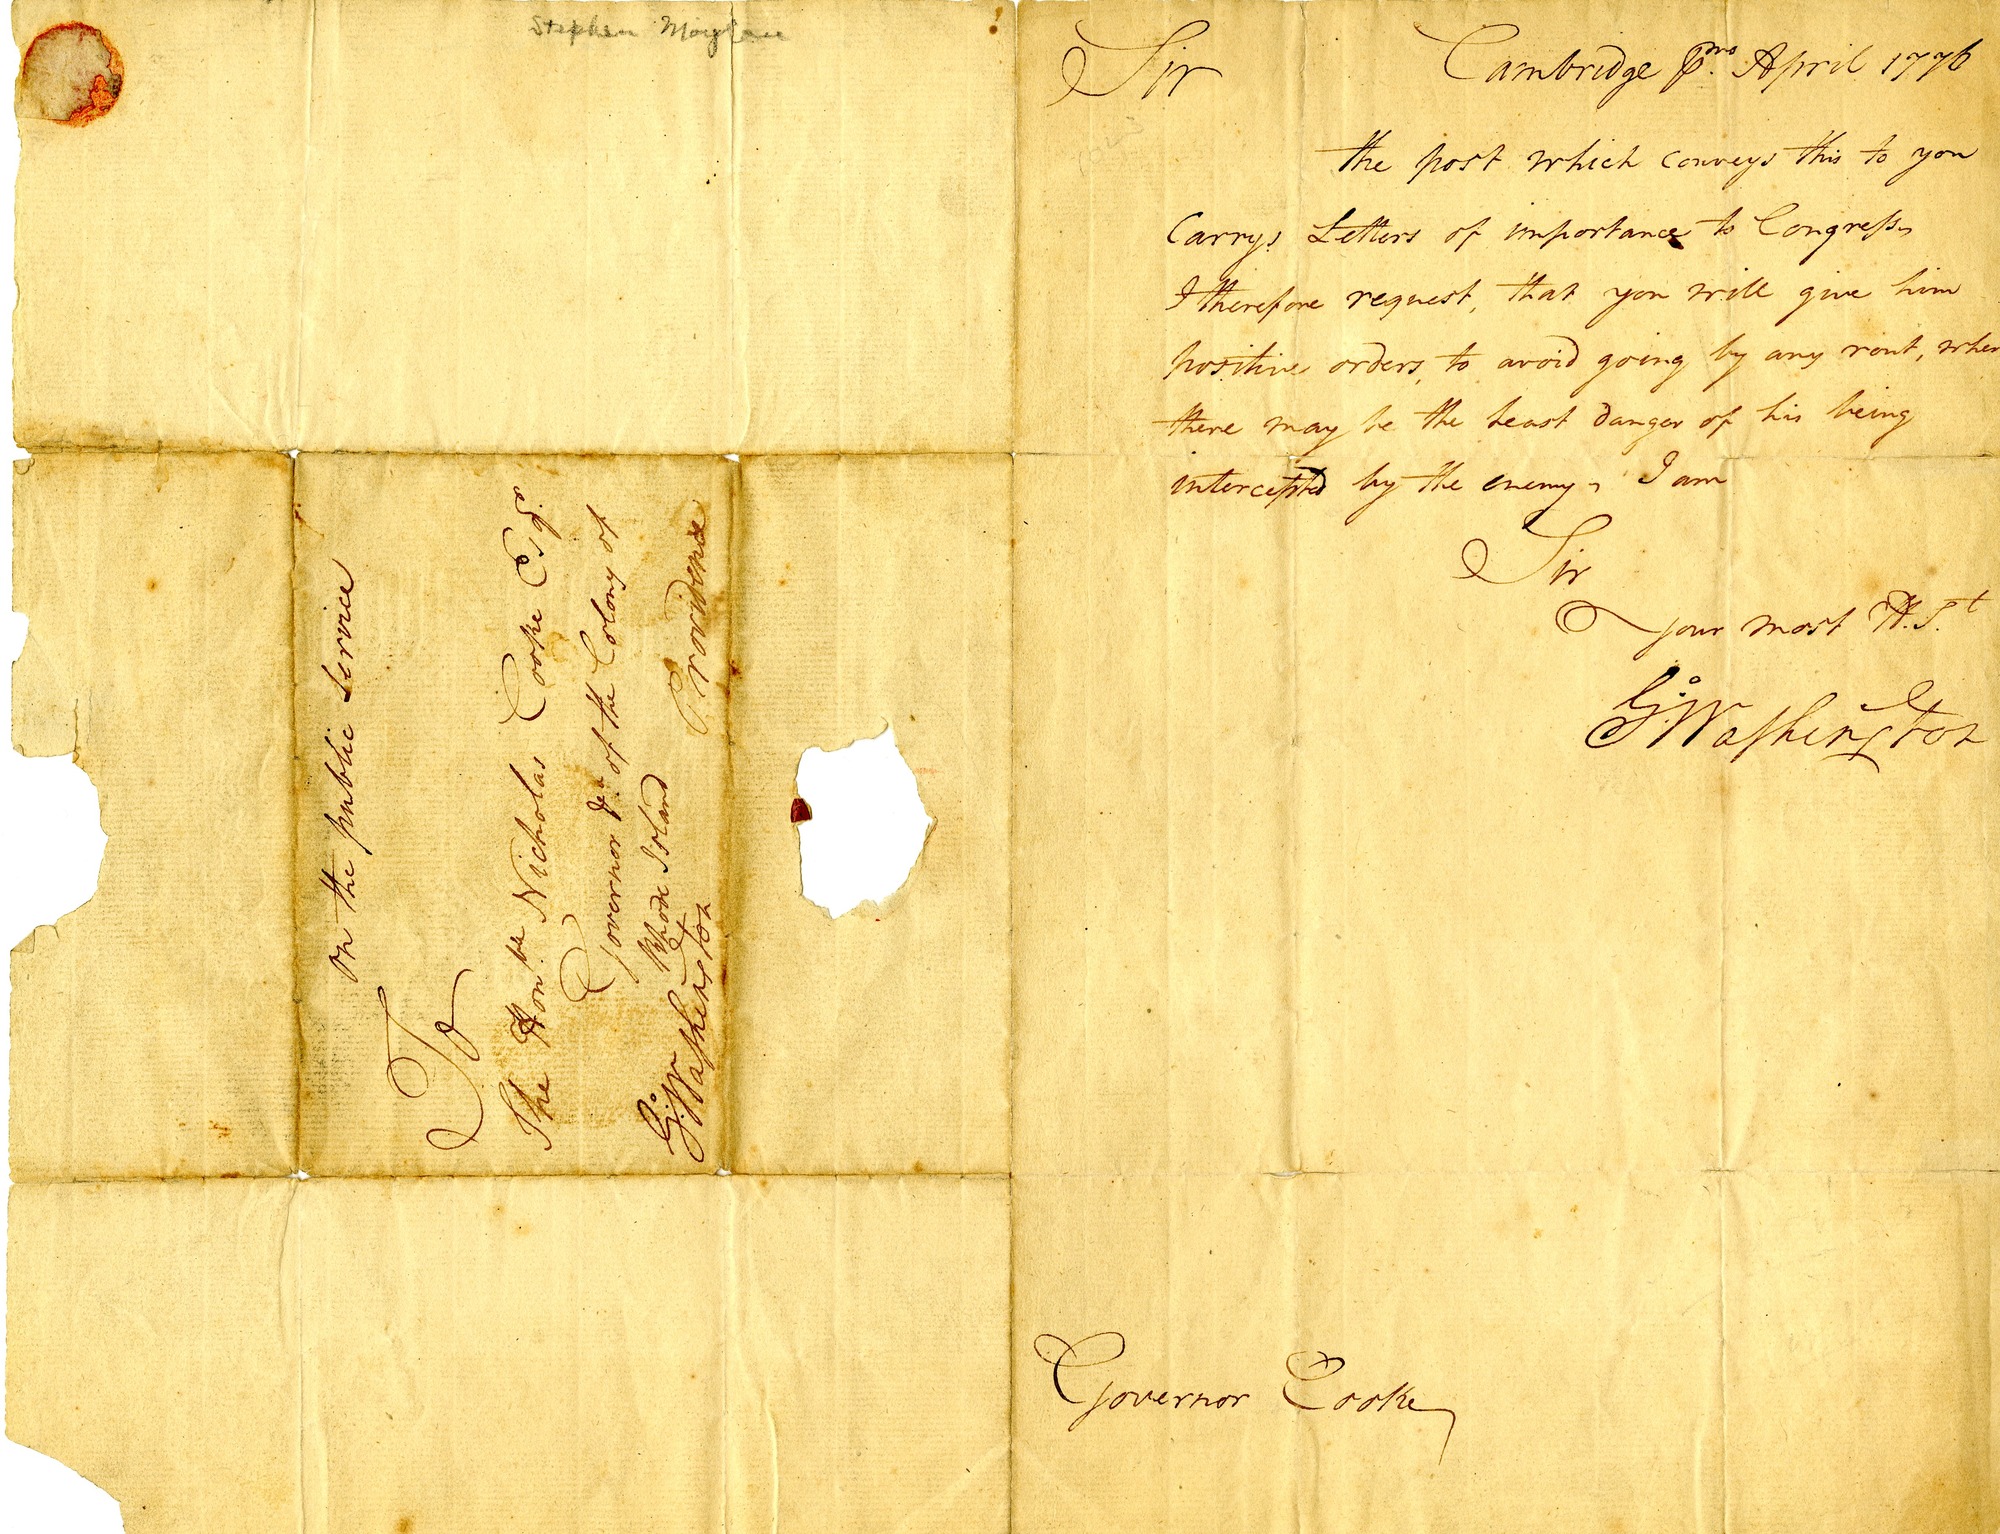 Stephen Moylan
on the public Service
To
The Honble. Nicholas Cooke Esqr.
Governor &ca. of the Colony of
Rhode Island
Providence
Go. Washington
Sir
Cambridge pmo. April 1776
the post which conveys this to you
Carrys Letters of importance to Congress,
I therefore request, that you will give him
positive orders, to avoid going by any rout, wher
there may be the least danger of his being
intercepted by the enemy, I am
Sir
your most H. St
Go. Washington
Governor Cooke